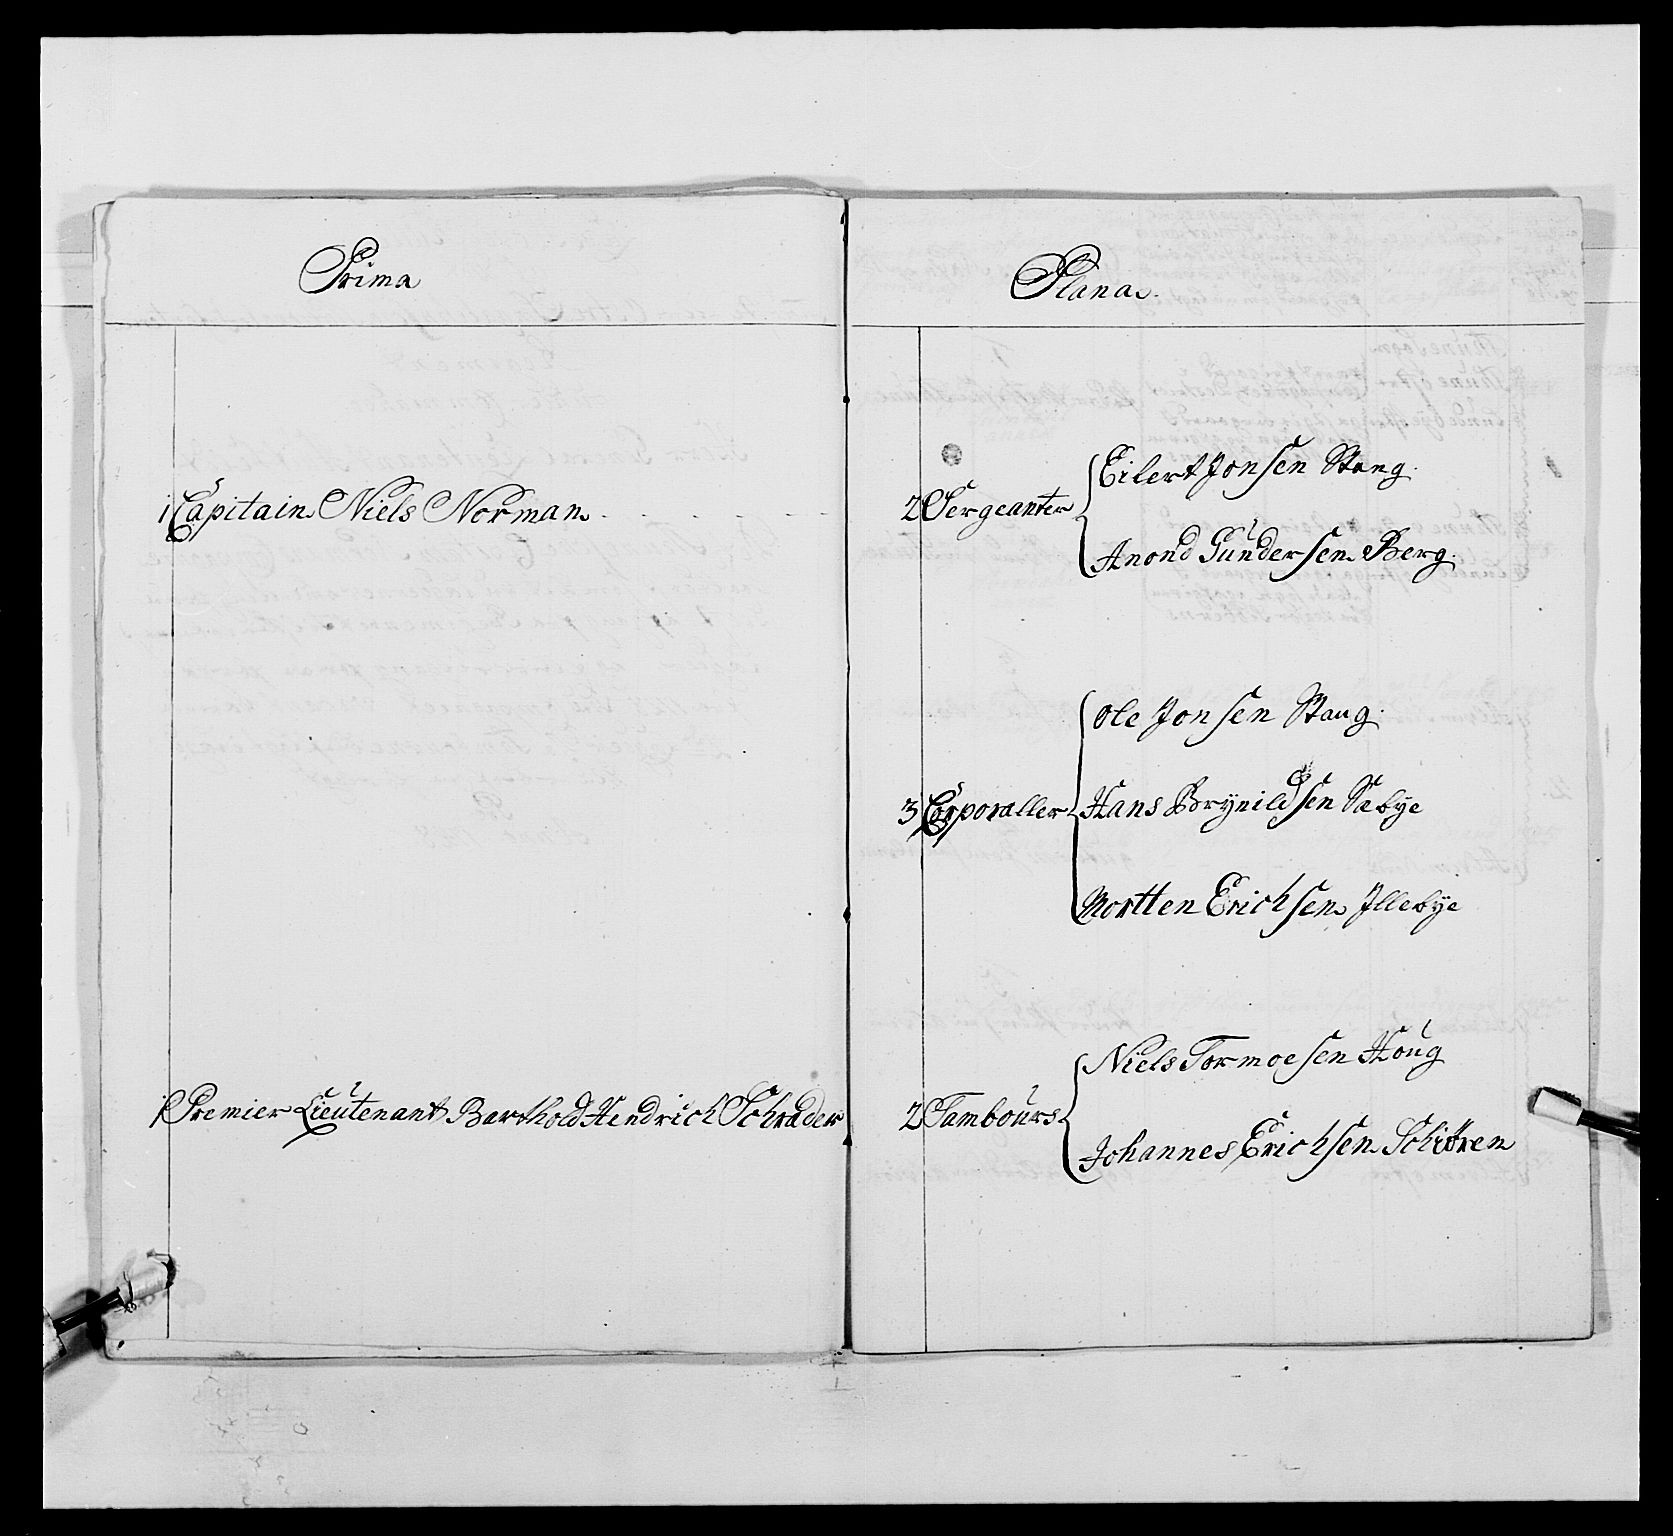 Prima
1 Capitain Niels Norman . . . . . .
1 Premier Lieutenant Barthold Hendrich Schrader
Plana.
2 Sergeanter
Eilert Jonsen Stang.
Anond Gundersen Berg.
3 Corporaller
Ole Jonsen Stang.
Hans Brynildsen Sæbye
Mortten Erichsen Illebye
2 Tambours
Niels Tormoesen Houg
Johannes Erichsen Schiören